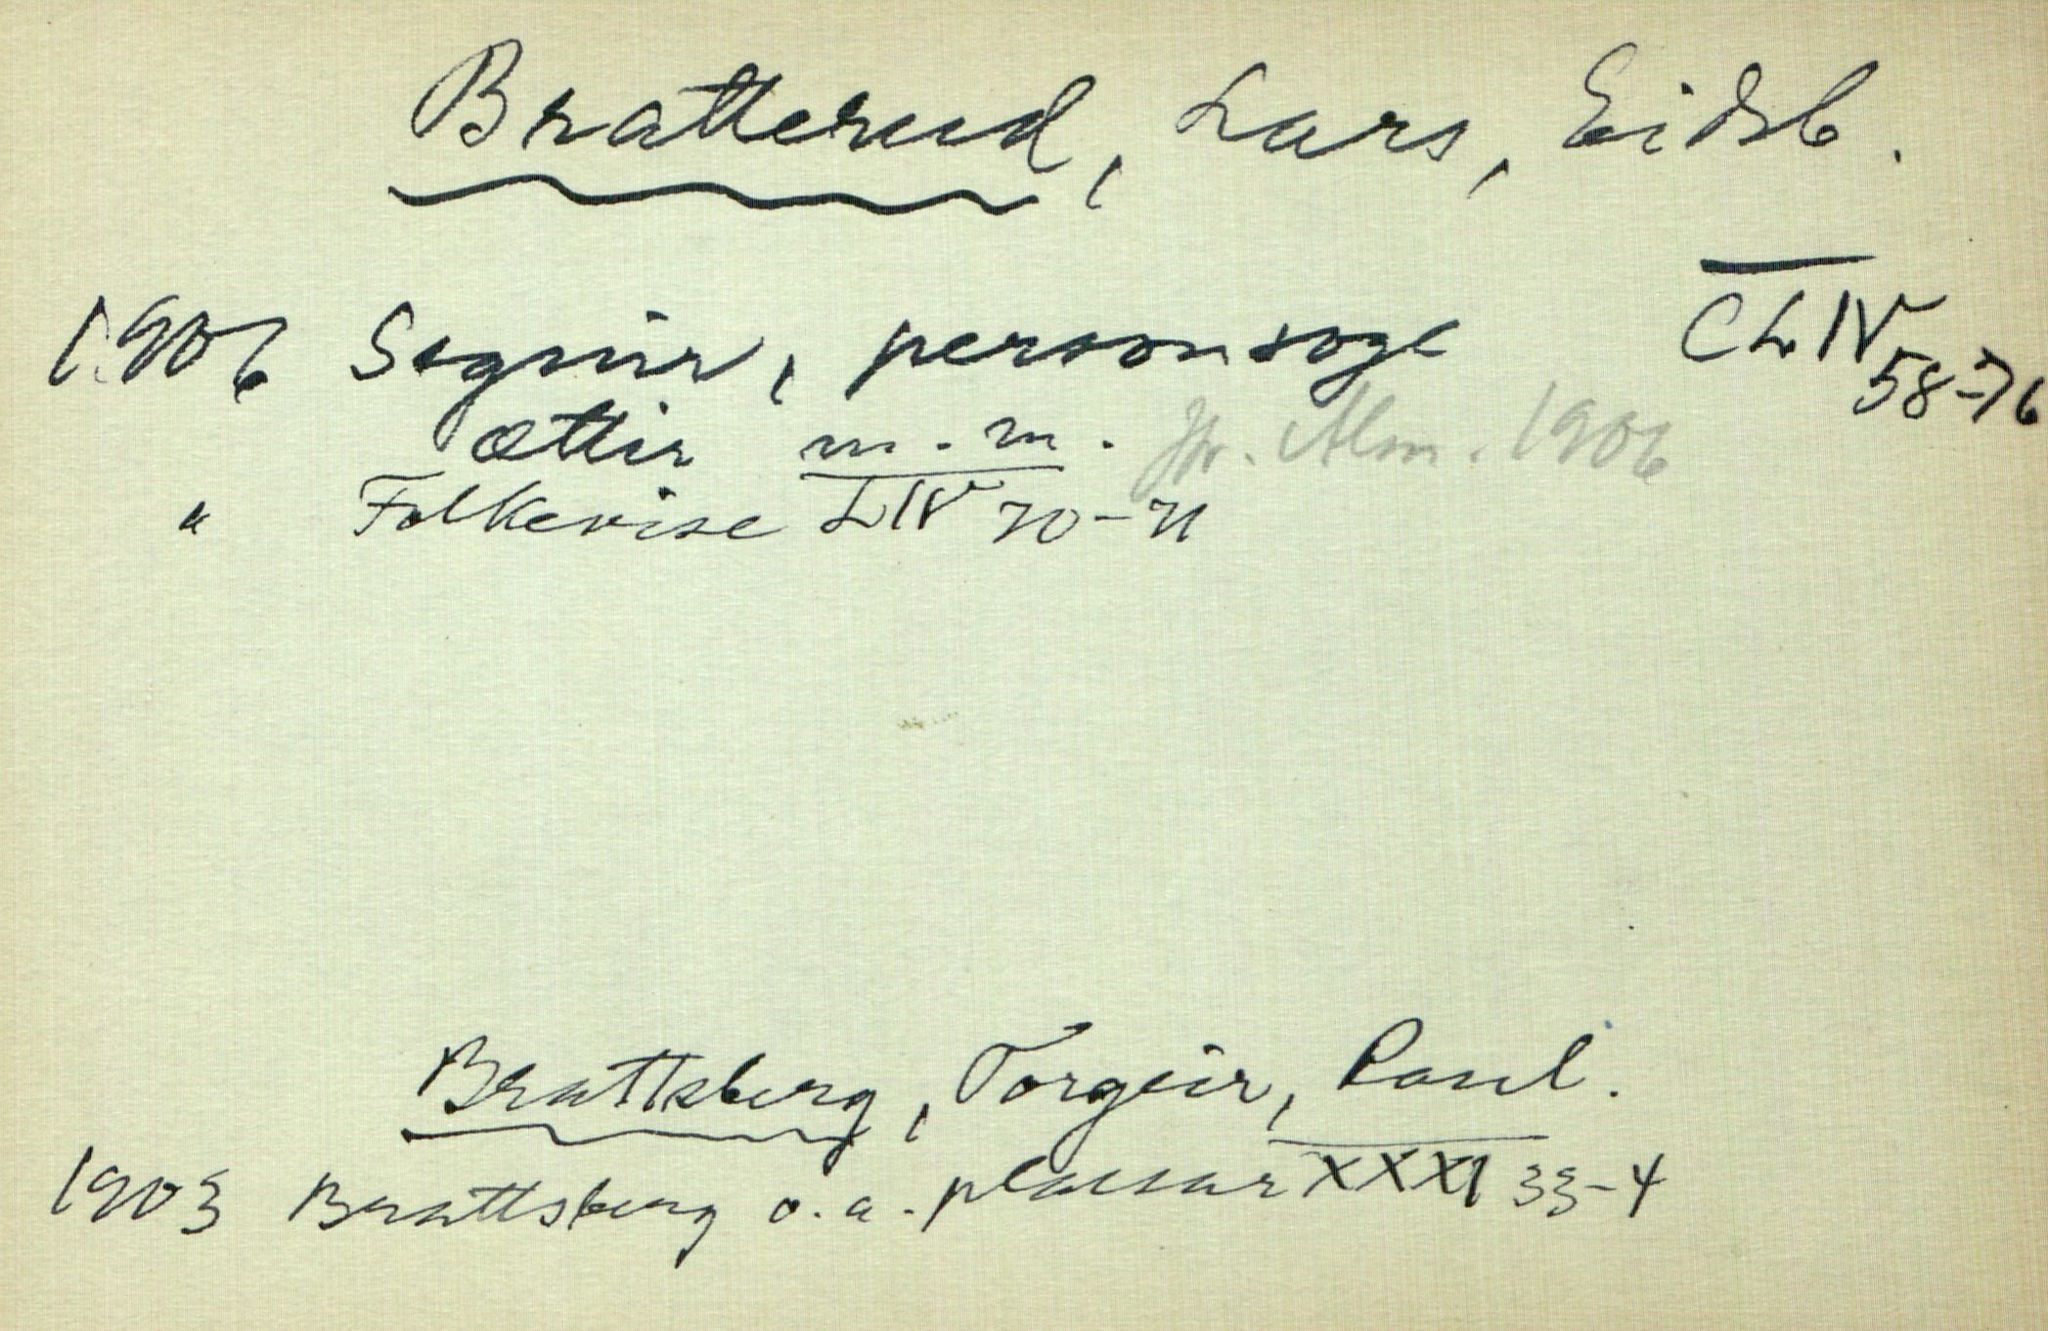 Bratterud, Lars, Eidsb.
1906 Segnir, personsoge CLIV 58-76
ættir m.m. Alm. 1906
" Folkevise LIV 70-71
Brattsberg, Torgeir, Rasul.
1903 Brattsberg o.a. plassar XXXI 33-4